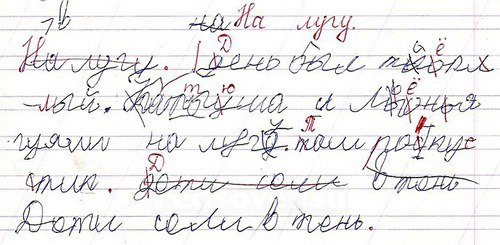 7 в на На лугу.
На лугу. День был тёпл
-лый. Катюша и Лёня
гуяли на лугу. Там рос кус
тик. доти соли в тень
Доти соли в тень.